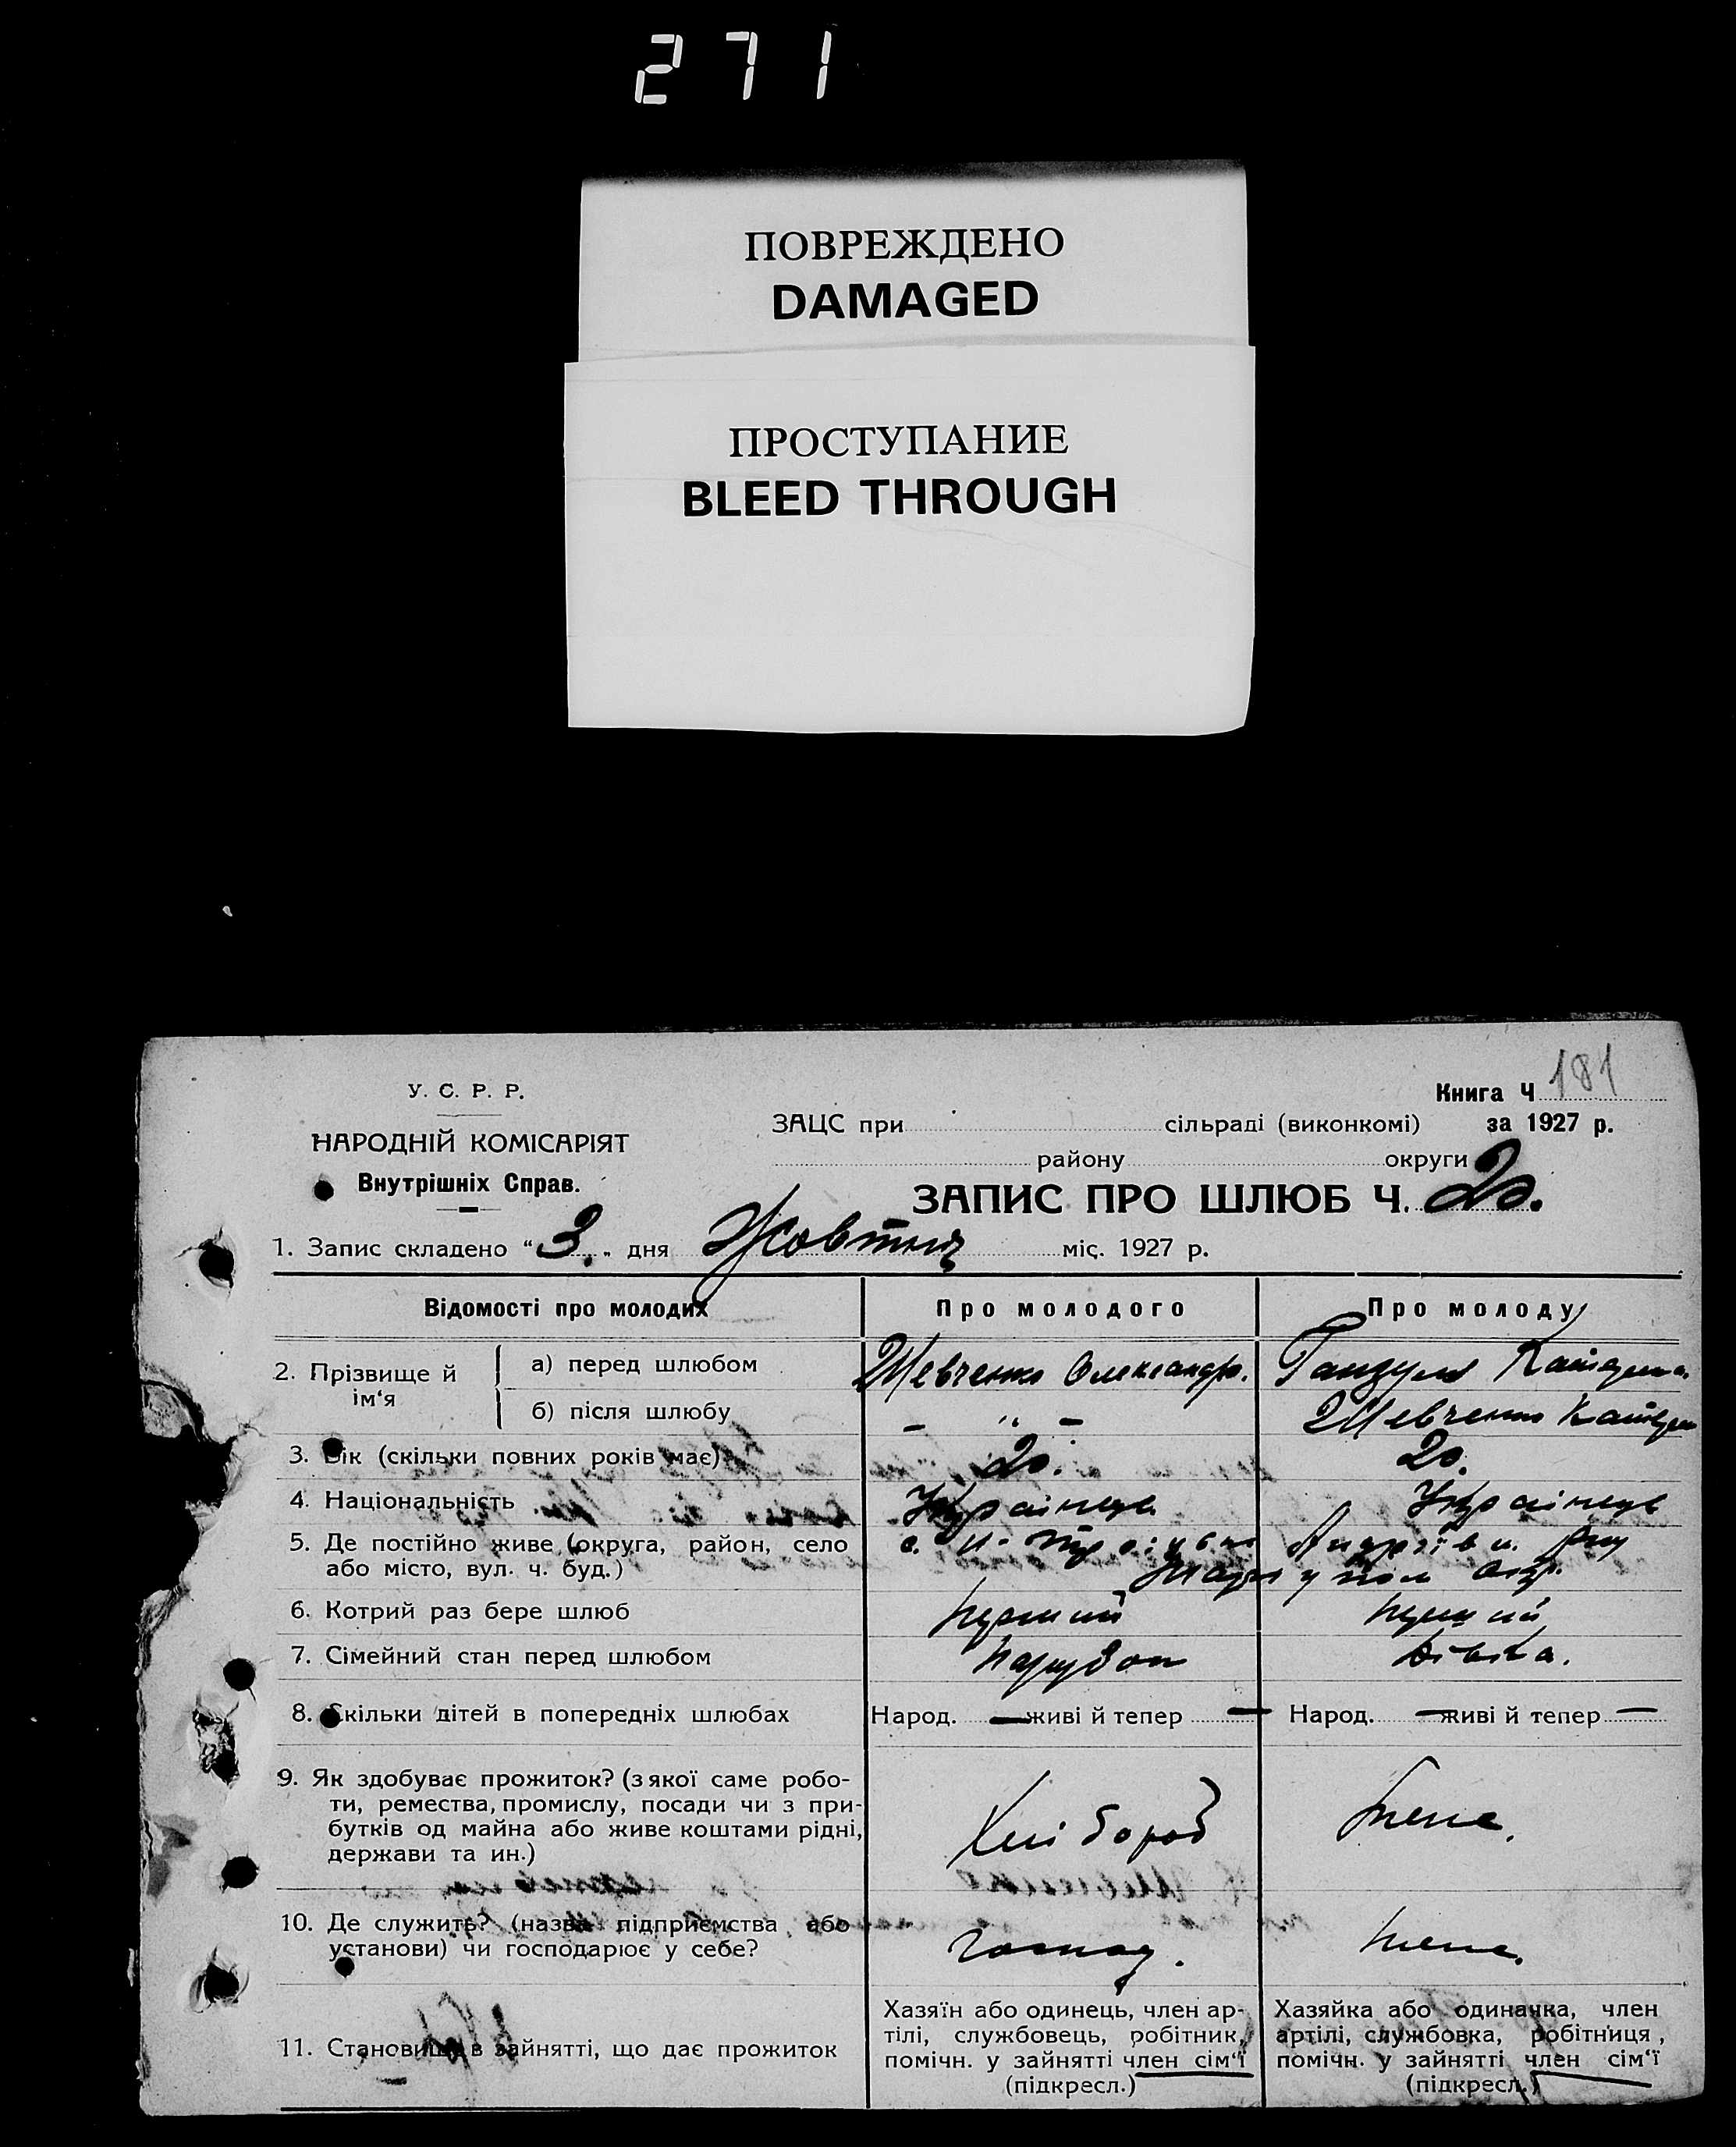 271
ПОВРЕЖДЕНО
DAMAGED
ПРОСТУПАНИЕ
BLEED THROUGH
У. С. Р. Р.
НАРОДНІЙ КОМІСАРІЯТ
Внутрішніх Справ.
Книга Ч 181
ЗАЦС при сільраді (виконкомі) за 1927 р.
району округи
ЗАПИС ПРО ШЛЮБ Ч. 20.
1. Запис складено "3." дня Жовтня міс. 1927 р.
Відомості про молодих Про молодого Про молоду
2. Прізвище й ім'я
а) перед шлюбом Шевченко Олександр. Катерина
б) після шлюбу — " — Шевченко Катерин
3. Вік (скільки повних років має) 20. 20.
4. Національність Українець Українець
5. Де постійно живе (округа, район, село
або місто, вул. ч. буд.)
6. Котрий раз бере шлюб перший перший
7. Сімейний стан перед шлюбом парубок дівка.
8. Скільки дітей в попередніх шлюбах Народ. — живі й тепер — Народ. — живі й тепер —
9. Як здобуває прожиток? (з якої саме робо-
ти, ремества, промислу, посади чи з при-
бутків од майна або живе коштами рідні,
держави та ин.)
Хлібороб
10. Де служить? (назва підприємства або
установи) чи господарює у себе?
господ.
11. Становище в зайнятті, що дає прожиток
Хазяїн або одинець, член ар-
тілі, службовець, робітник,
помічн. у зайнятті член сім'ї
(підкресл.)
Хазяйка або одиначка, член
артілі, службовка, робітниця,
помічн. у зайнятті член сім'ї
(підкресл.)